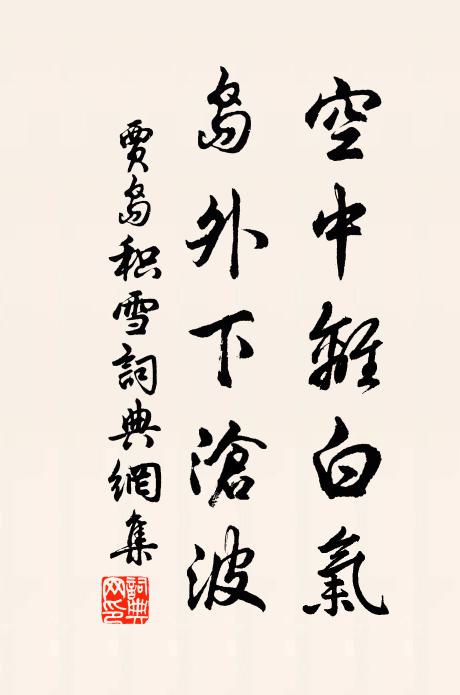 空中離白氣
島外下滄波
賈島积雪詞典網集
詞典
网印